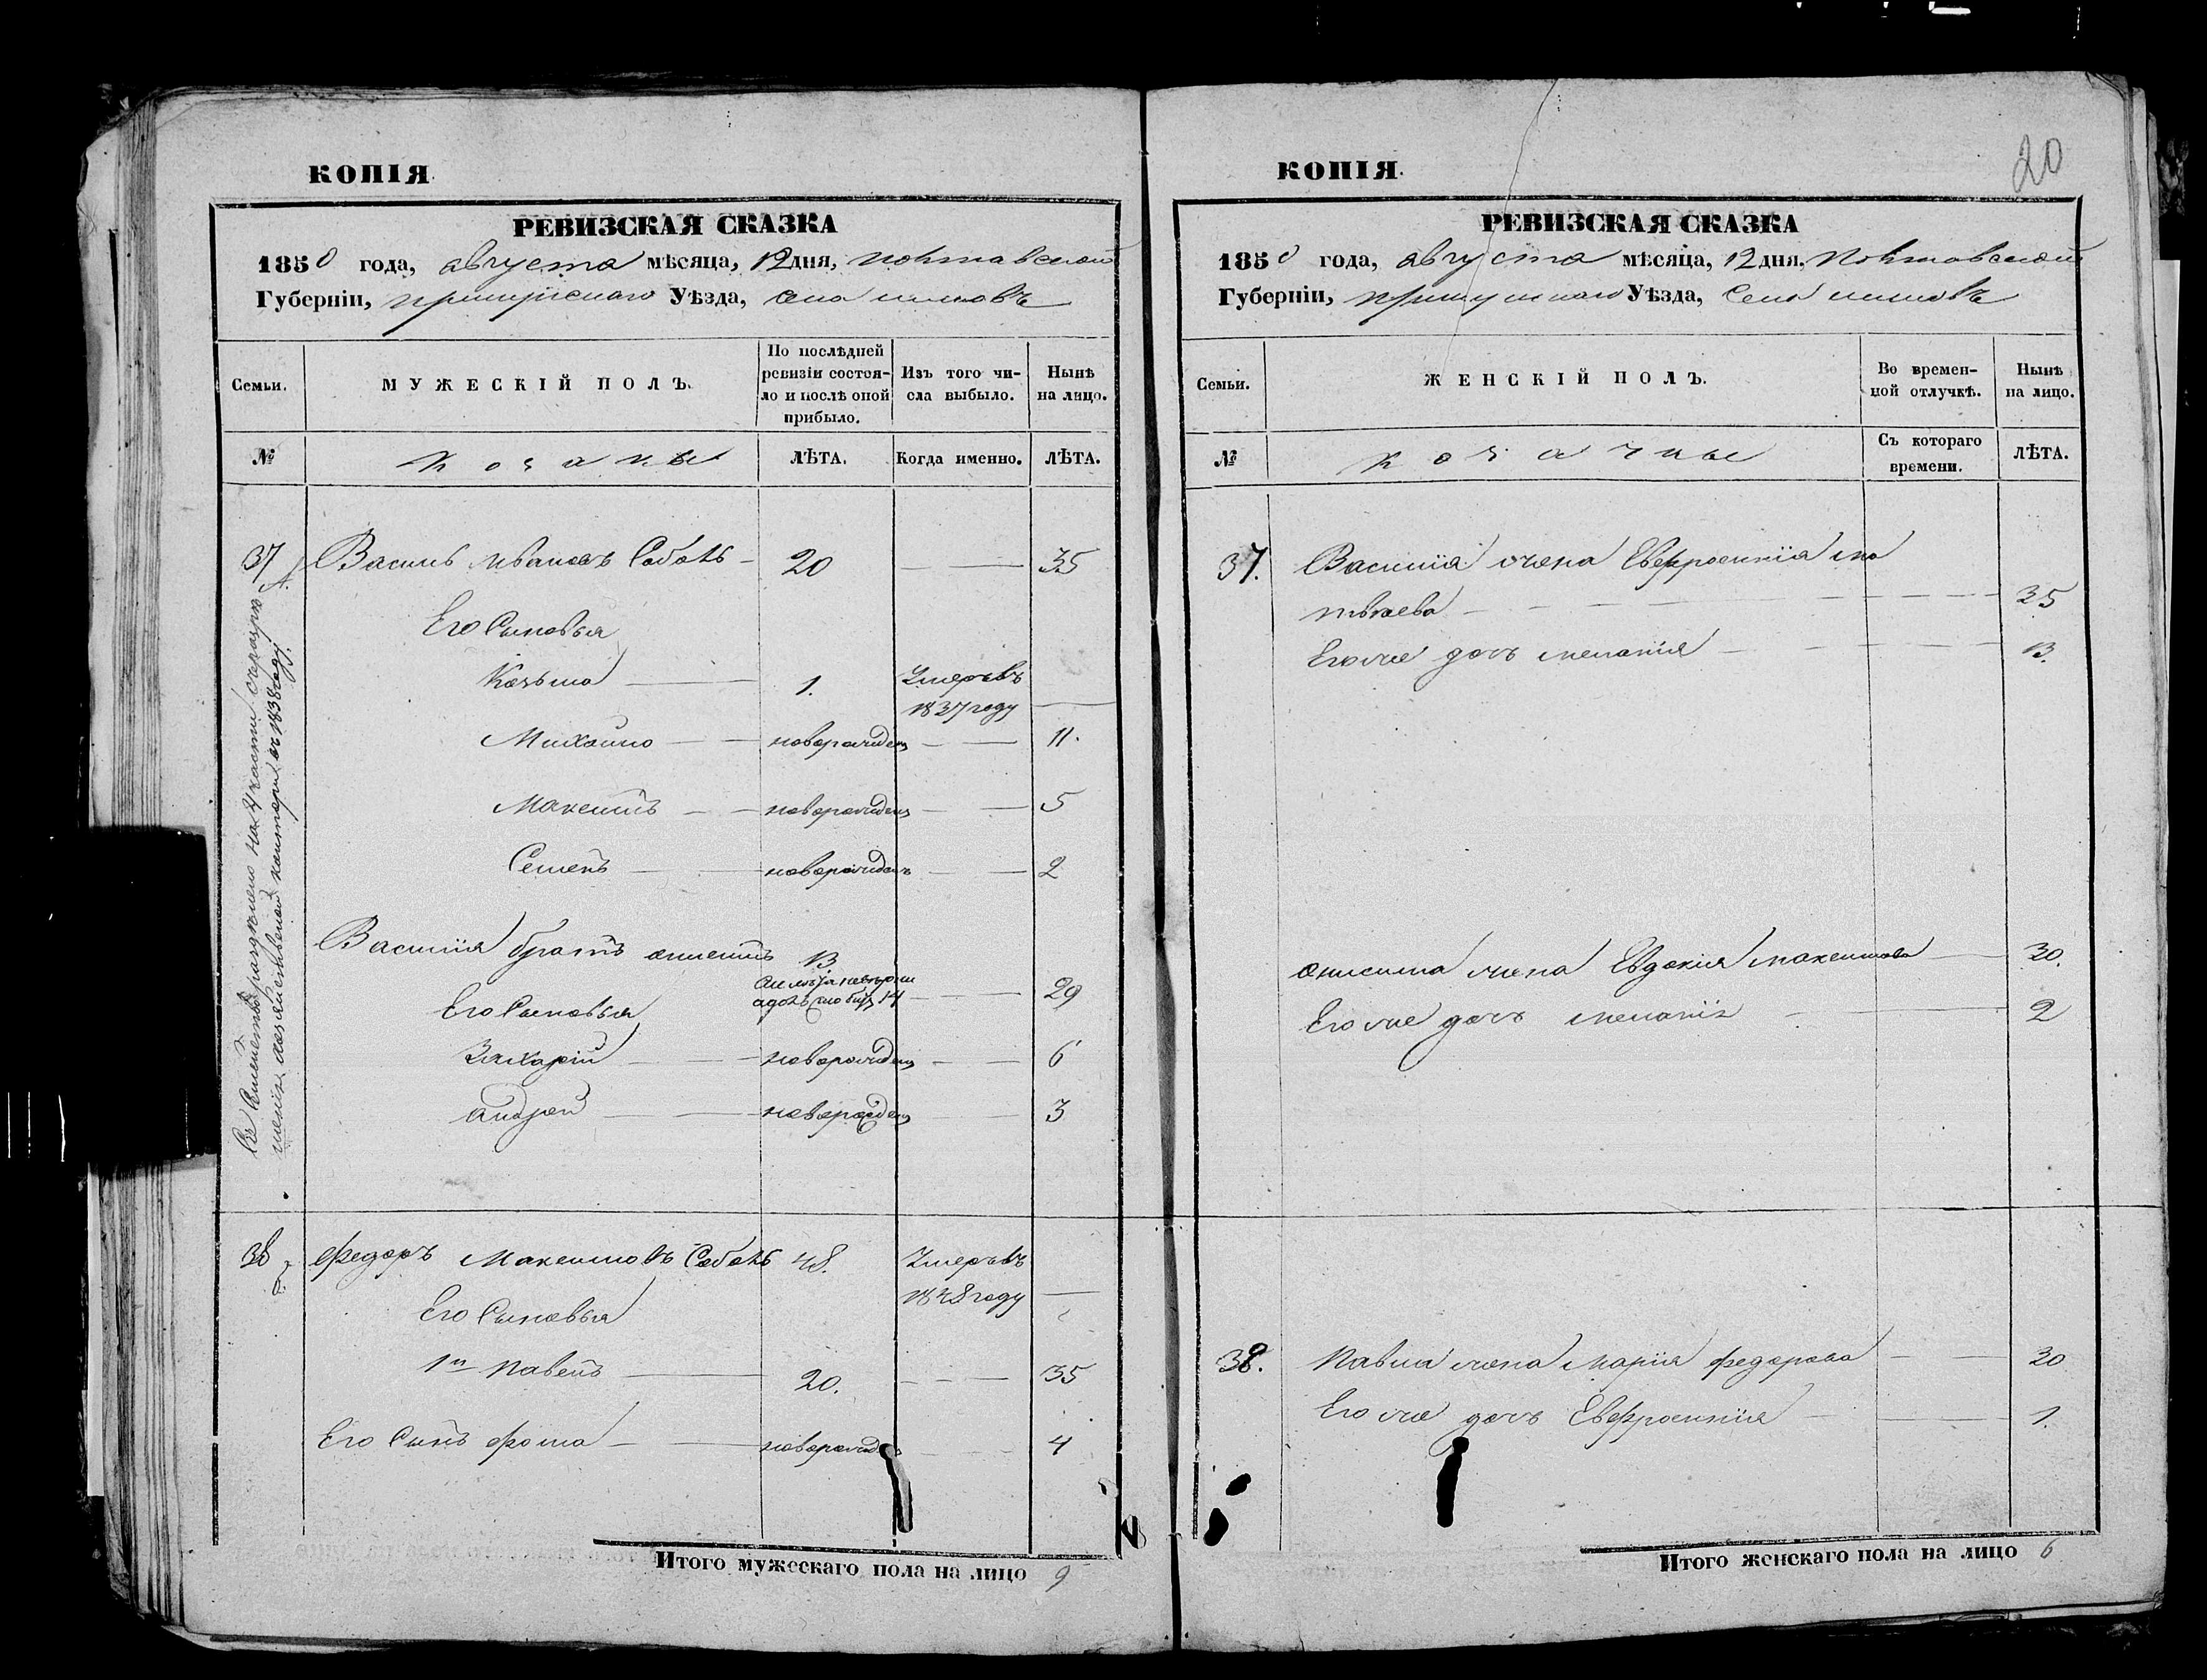 КОПІЯ.
РЕВИЗСКАЯ СКАЗКА
1850 года, августа мѣсяца, 12 дня, Полтавской
Губерніи, Прилуцкаго Уѣзда, села
Семьи.
МУЖЕСКІЙ ПОЛЪ.
По послѣдней
ревизіи состоя-
ло и послѣ оной
прибыло.
Изъ того чи-
сла выбыло.
Нынѣ
на лицо.
№
Козаки
ЛѢТА.
Когда именно.
ЛѢТА.
37
Василь Ивановъ Соболь 20 35
Его Сыновья
Козьма 1. Умеръ въ
1837 году
Михайло новорожден 11.
Максимъ новорожден 5
Семенъ новорожден 2
Василія братъ Онисимъ 13
14 29
Его Сыновья
Захарій новорожден 6
Андрей новорожден 3
Сіе Семейство раздѣлено на 2 части
въ 1838 году.
38 Федоръ Максимовъ Соболь 48. Умеръ въ
1848 году
Его Сыновья
1й Павелъ 20. 35
Его Сынъ Фома новорожден 4
Итого мужескаго пола на лицо 9
КОПІЯ.
20
РЕВИЗСКАЯ СКАЗКА
1850 года, августа мѣсяца, 12 дня, Полтавской
Губерніи, Прилуцкаго Уѣзда, села
Семьи.
ЖЕНСКІЙ ПОЛЪ.
Во времен-
ной отлучкѣ.
Нынѣ
на лицо.
№
Козачки
Съ котораго
времени.
ЛѢТА.
37. Василія жена Евфросинія Ма
твѣева 35
Егожъ дочь Меланія 13.
Онисима жена Евдокія Максимова 30.
Его же дочь Меланія 2
38. Павла жена Марія Федорова 30
Его же дочь Евфросинія 1.
Итого женскаго пола на лицо 6